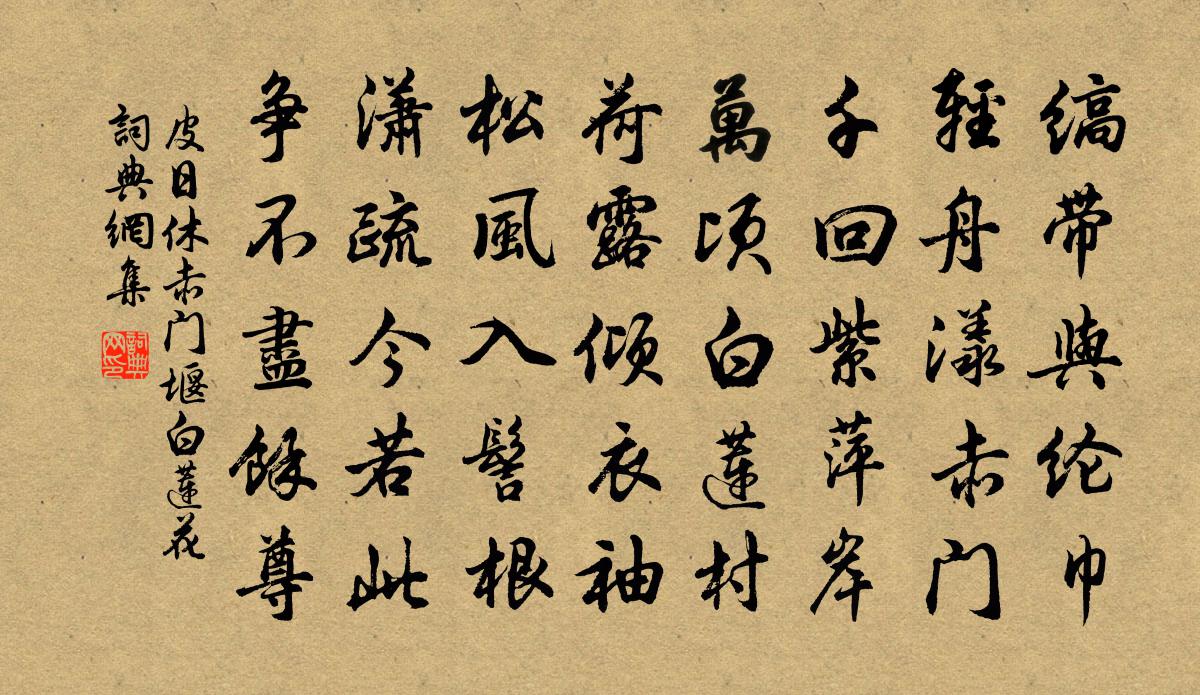 缟帶與纶巾
輕舟漾赤门
千回紫萍岸
萬顷白蓮村
荷露倾衣袖
松風入髻根
瀟疏今若此
争不盡餘尊
皮日休赤门堰白蓮花
詞典網集
詞典
网印